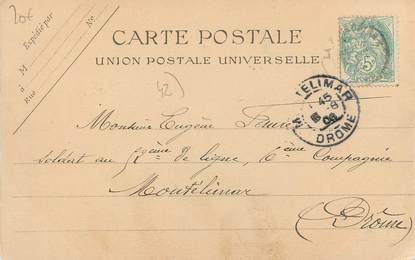 20€
Expédié par
M
à
Rue
No
CARTE POSTALE
UNION POSTALE UNIVERSELLE
42)
5c
ELIMAR
45
8
06
DROME
Monsieur Eugène
Soldat au 52ème de ligne, 6ème Compagnie
Montélimar
(Drôme)